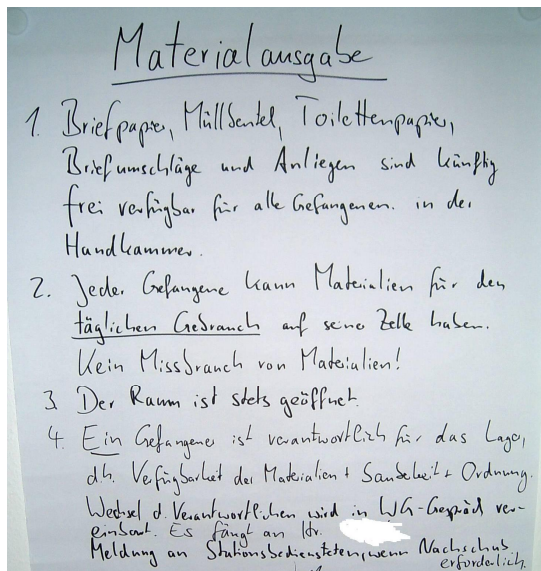 Materialausgabe
1. Briefpapier, Müllbeutel, Toilettenpapier,
Briefumschläge und Anliegen sind künftig
frei verfügbar für alle Gefangenen. in der
Handkammer.
2. Jeder Gefangene kann Materialien für den
täglichen Gebrauch auf seiner Zelle haben.
Kein Missbrauch von Materialien!
3. Der Raum ist stets geöffnet.
4. Ein Gefangener ist verantwortlich für das Lager,
d.h. Verfügbarkeit der Materialien + Sauberkeit + Ordnung.
Wechsel d. Verantwortlichen wird in WG-Gespräch ver-
einbart. Es fängt an Hr.
Meldung an Stationsbediensteten, wenn Nachschub
erforderlich.